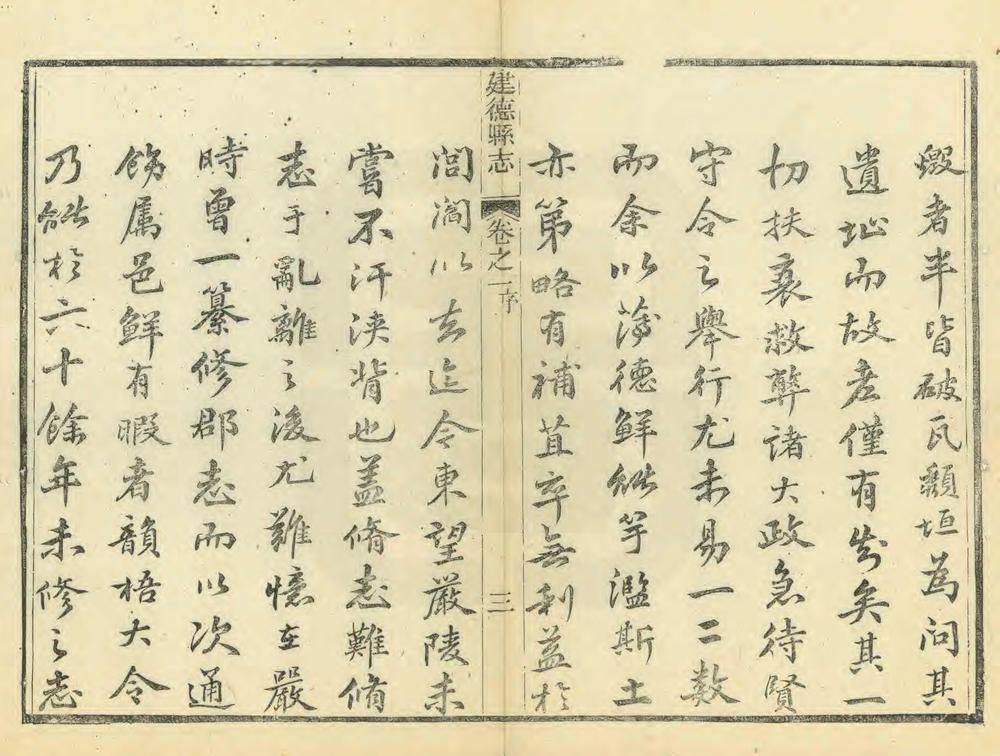 煅者半皆破瓦頽垣為问其
遺址而故老僅有知矣其一
切扶衰救弊諸大政急待賢
守令之舉行尤未易一二数
而余以薄德鮮能竽濫斯土
亦第略有補苴卒無利益於
建德縣志 卷之一 序 三
閭阎以去迄今東望嚴陵未
嘗不汗浹背也盖脩志難脩
志于亂離之後尤難憶在嚴
時曾一纂修郡志而以次通
飭属邑鮮有暇者韻梧大令
乃能於六十餘年未修之志